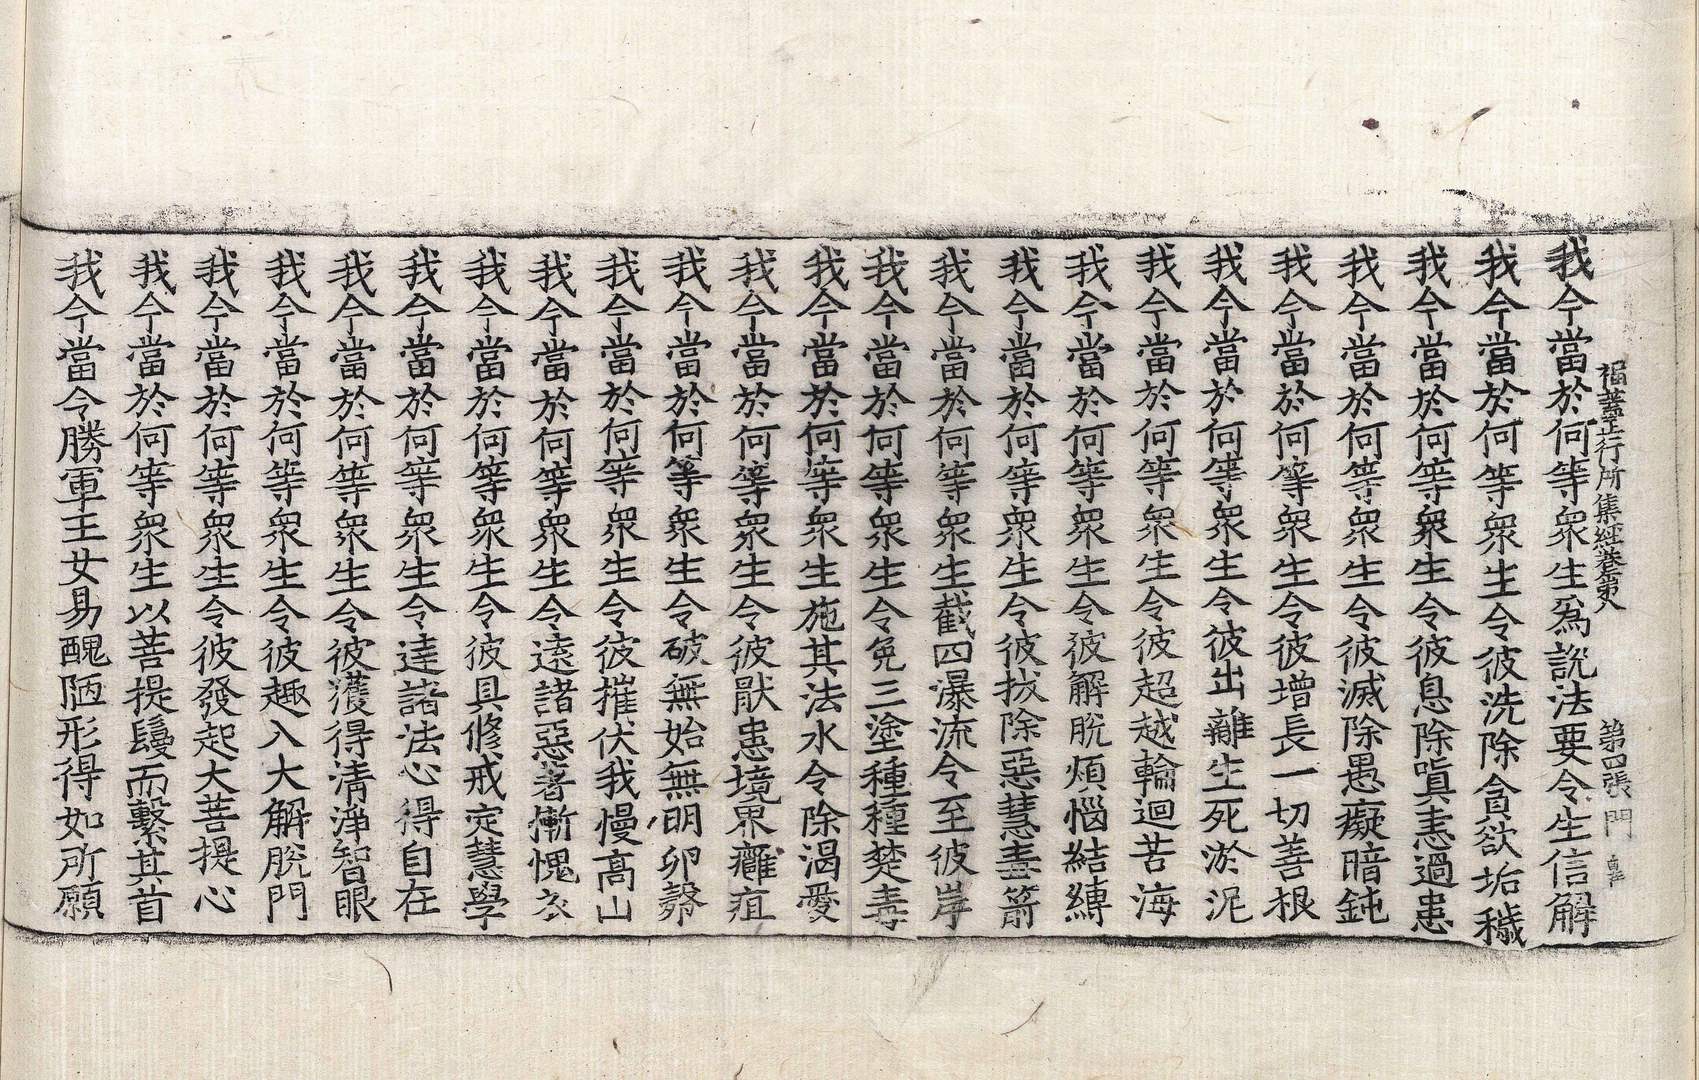 福蓋正行所集經卷第八 第四張 門
我今當於何等衆生爲說法要令生信解
我今當於何等衆生令彼洗除貪欲垢穢
我今當於何等衆生令彼息除嗔恚過患
我今當於何等衆生令彼滅除愚癡暗鈍
我今當於何等衆生令彼增長一切善根
我今當於何等衆生令彼出離生死淤泥
我今當於何等衆生令彼超越輪迴苦海
我今當於何等衆生令彼解脫煩惱結縛
我今當於何等衆生令彼拔除惡慧毒箭
我今當於何等衆生截四瀑流令至彼岸
我今當於何等衆生令免三塗種種楚毒
我今當於何等衆生施其法水令除渴愛
我今當於何等衆生令彼猒患境界癰疽
我今當於何等衆生令破無始無明卵㲉
我今當於何等衆生令彼摧伏我慢高山
我今當於何等衆生令遠諸惡著慚愧衣
我今當於何等衆生令彼具修戒定慧學
我今當於何等衆生令達諸法心得自在
我今當於何等衆生令彼獲得清淨智眼
我今當於何等衆生令彼趣入大解脫門
我今當於何等衆生令彼發起大菩提心
我今當於何等衆生以菩提鬘而繫其首
我今當令勝軍王女易醜陋形得如所願